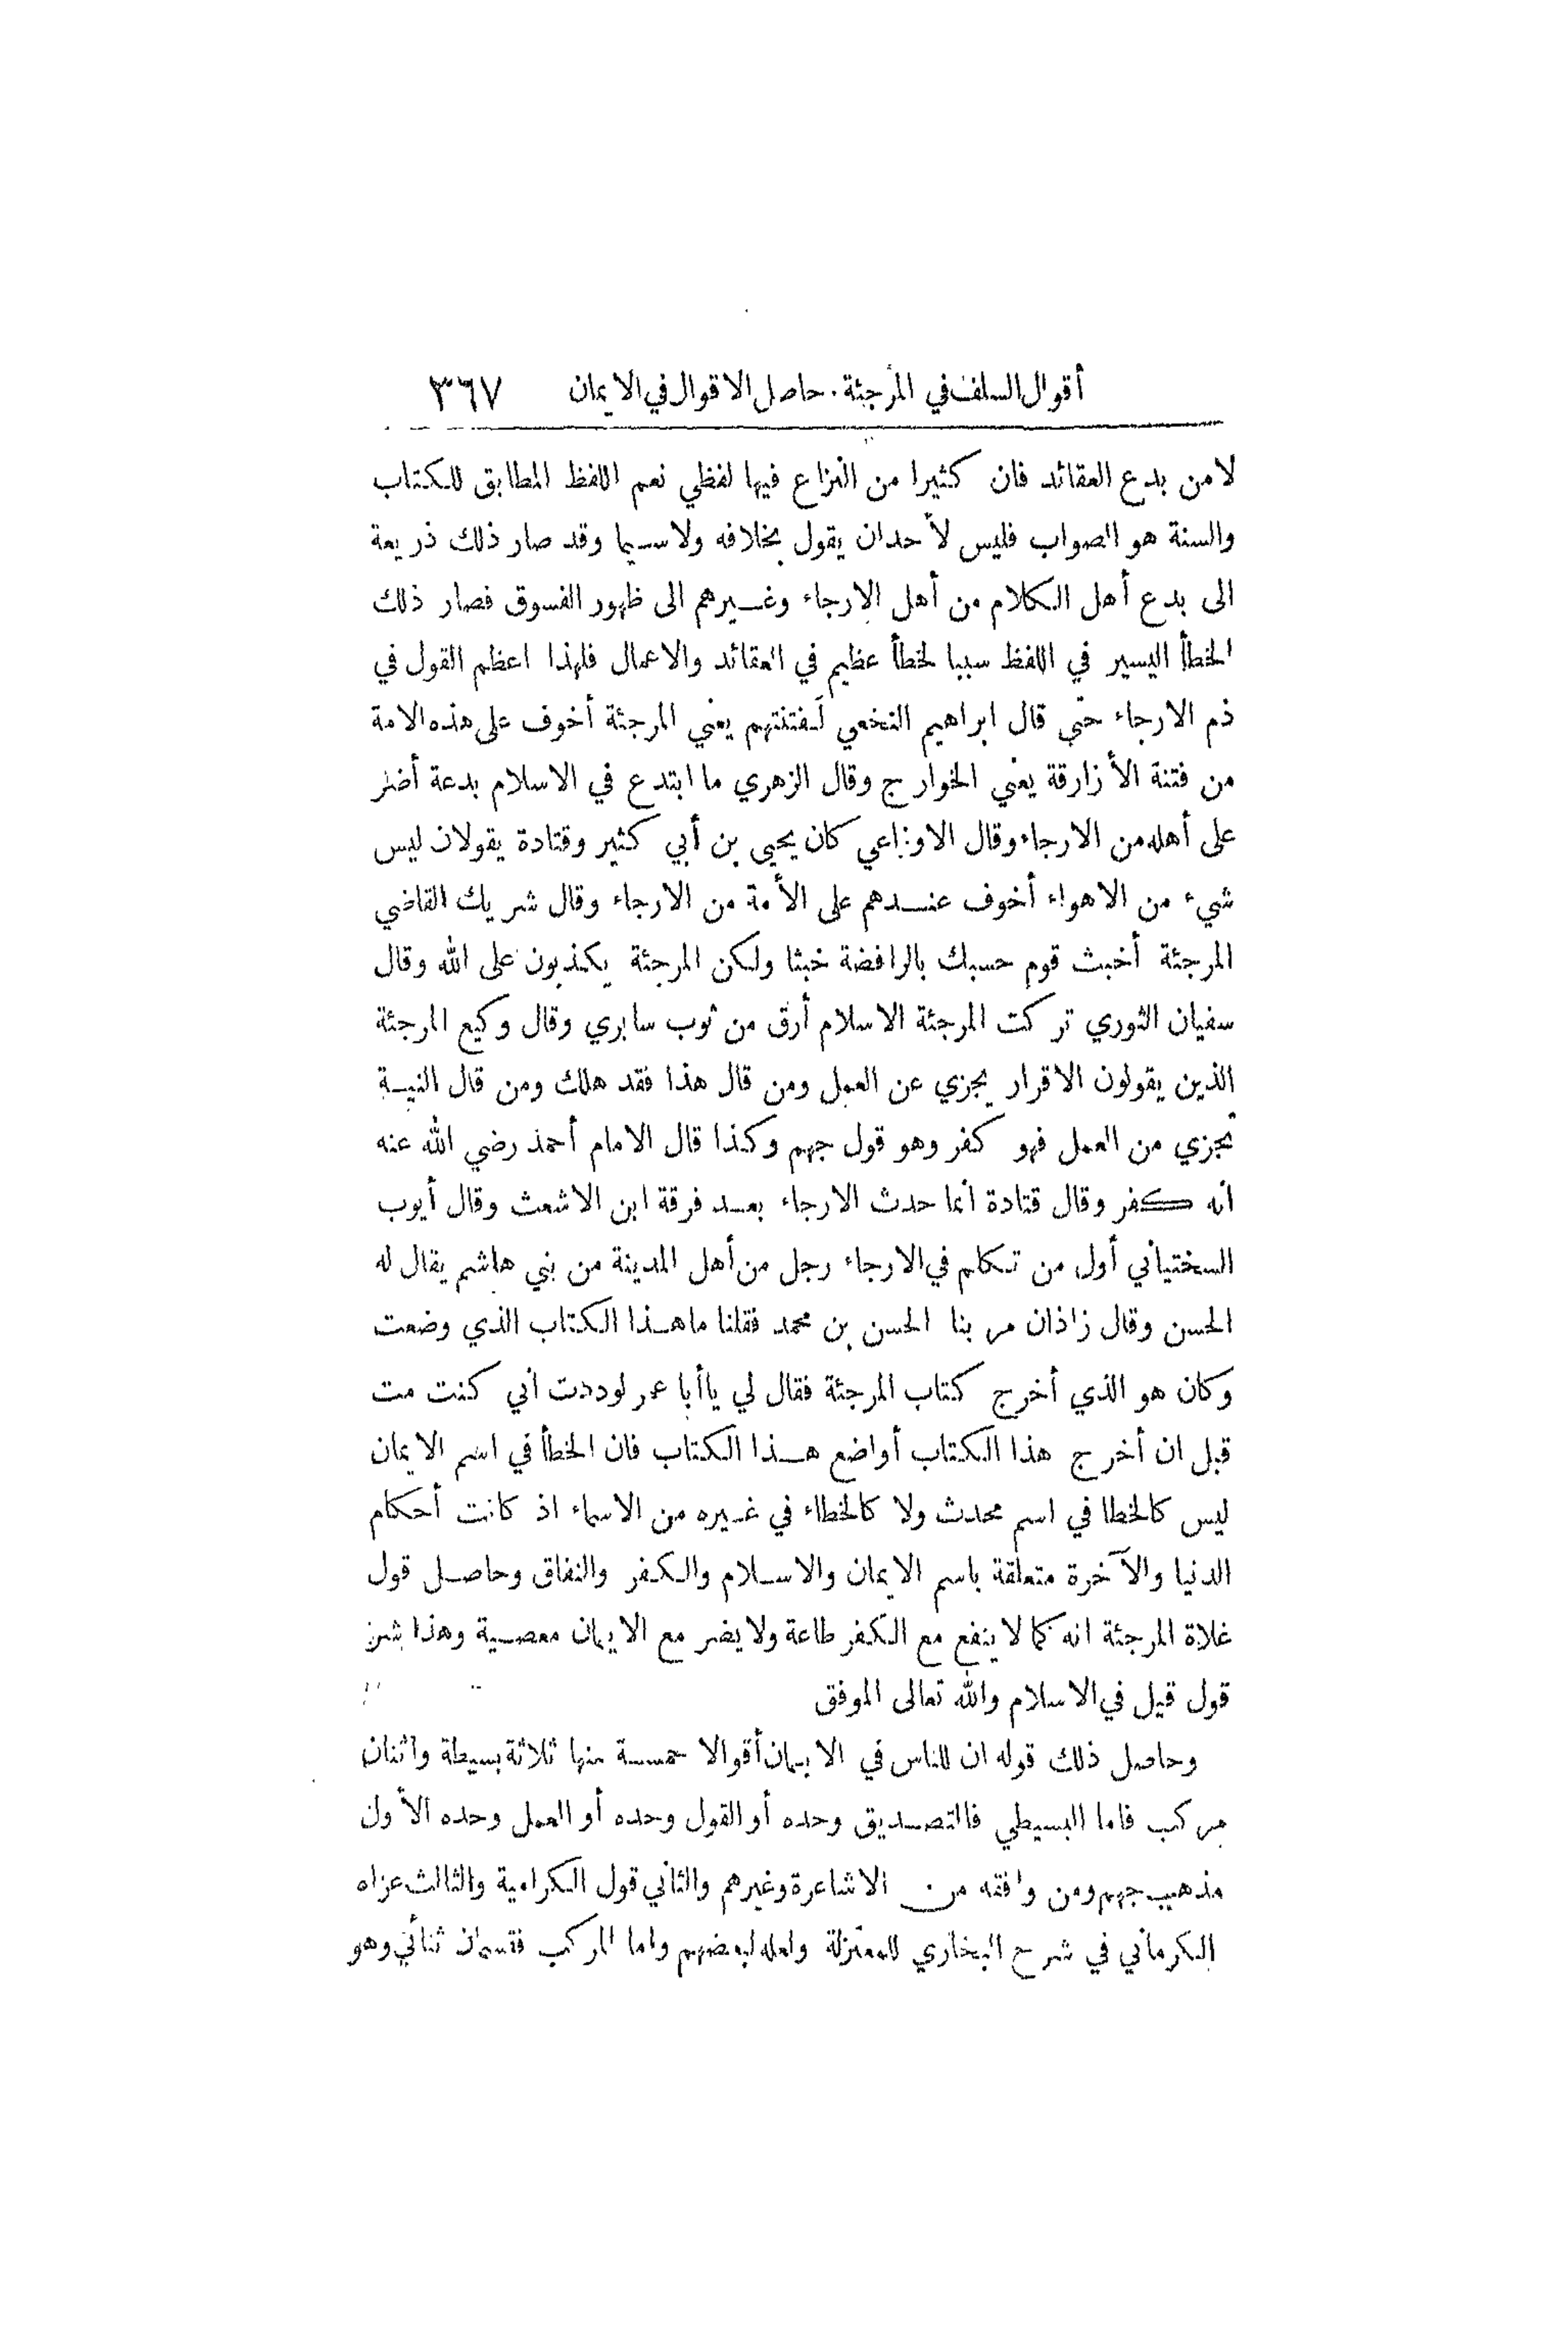 أقوال السلف في المرجئة . حاصل الاقوال في الايمان ٣٦٧
لا من بدع العقائد فان كثيرا من النزاع فيها لفظي نعم اللفظ المطابق للكتاب
والسنة هو الصواب فليس لأحد ان يقول بخلافه ولا سيما وقد صار ذلك ذريعة
الى بدع أهل الكلام من أهل الارجاء وغيرهم الى ظهور الفسوق فصار ذلك
الخطأ اليسير في اللفظ سببا لخطأ عظيم في العقائد والاعمال فلهذا اعظم القول في
ذم الارجاء حتى قال ابراهيم النخعي لَفتنتهم يعني المرجئة أخوف على هذه الامة
من فتنة الأزارقة يعني الخوارج وقال الزهري ما ابتدع في الاسلام بدعة أضر
على أهله من الارجاء وقال الاوزاعي كان يحيى بن أبي كثير وقتادة يقولان ليس
شيء من الاهواء أخوف عندهم على الأمة من الارجاء وقال شريك القاضي
المرجئة أخبث قوم حسبك بالرافضة خبثا ولكن المرجئة يكذبون على الله وقال
سفيان الثوري تركت المرجئة الاسلام أرق من ثوب سابري وقال وكيع المرجئة
الذين يقولون الاقرار يجزي عن العمل ومن قال هذا فقد هلك ومن قال النية
تجزي من العمل فهو كفر وهو قول جهم وكذا قال الامام أحمد رضي الله عنه
انه كفر وقال قتادة انما حدث الارجاء بعد فرقة ابن الاشعث وقال أيوب
السختياني أول من تكلم في الارجاء رجل من أهل المدينة من بني هاشم يقال له
الحسن وقال زاذان مر بنا الحسن بن محمد فقلنا ما هذا الكتاب الذي وضعت
وكان هو الذي أخرج كتاب المرجئة فقال لي يا أبا عمر لوددت اني كنت مت
قبل ان أخرج هذا الكتاب أو اضع هذا الكتاب فان الخطأ في اسم الايمان
ليس كالخطا في اسم محدث ولا كالخطاء في غيره من الاسماء اذ كانت أحكام
الدنيا والآخرة متعلقة باسم الايمان والاسلام والكفر والنفاق وحاصل قول
غلاة المرجئة انه كما لا ينفع مع الكفر طاعة ولا يضر مع الايمان معصية وهذا شر
قول قيل في الاسلام والله تعالى الموفق
وحاصل ذلك قوله ان للناس في الايمان أقوالا خمسة منها ثلاثة بسيطة واثنان
مركب فاما البسيطي فالتصديق وحده أو القول وحده أو العمل وحده الأول
مذهب جهم ومن وافقه من الاشاعرة وغيرهم والثاني قول الكرامية والثالث عزاه
الكرماني في شرح البخاري للمعتزلة ولعله لبعضهم واما المركب فقسمان ثنائي وهو